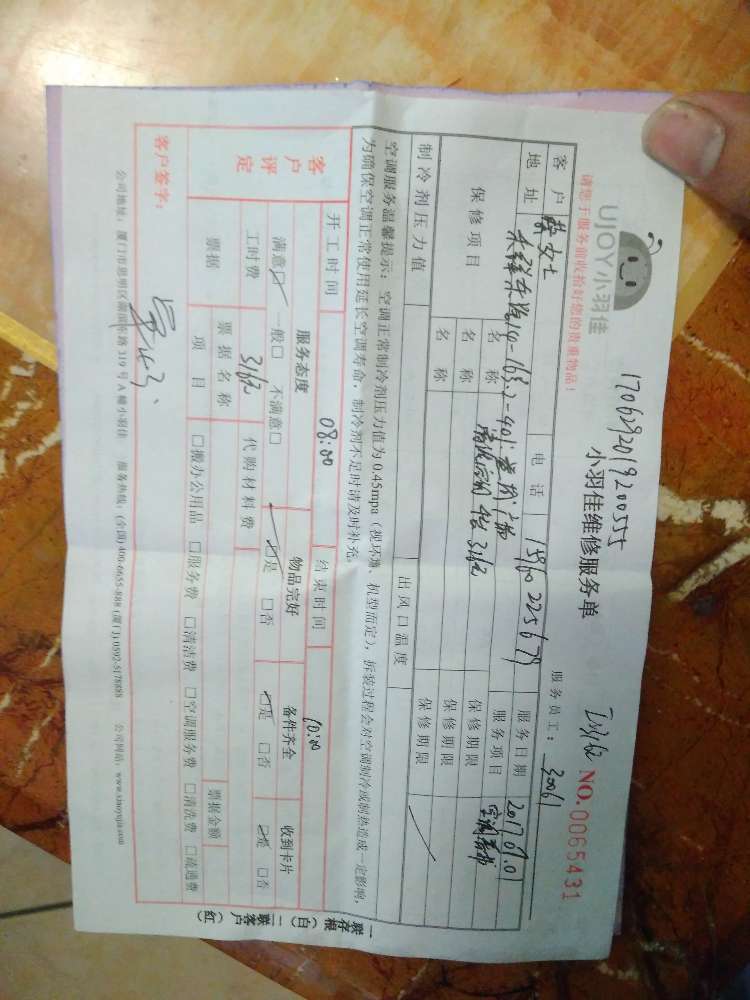 UJOY小羽佳
请您于服务前收拾好您的贵重物品!
170629201920055
小羽佳维修服务单
NO.0065431
服务员工: 30061
客户 女士 电话 服务日期 2017.07.01
地址 服务项目
保修项目 名称 保修期限
名称 保修期限
名称 保修期限
制冷剂压力值 出风口温度
空调服务温馨提示: 空调正常制冷剂压力值为0.45mpa (视环境、机型而定), 拆装过程会对空调制冷或制热造成一定影响,
为确保空调正常使用延长空调寿命, 制冷剂不足时请及时补充。
开工时间 08:00 结束时间 10:00
客户评定 服务态度 物品完好 备件齐全 收到卡片
满意☑ 一般□ 不满意□ ☑是 □否 ☑是 □否 ☑是 □否
工时费 代购材料费
票据 票据名称 票据金额
项目 □搬办公用品 □服务费 □清洁费 □空调服务费 □清洗费 □疏通费
客户签字:
公司地址: 厦门市思明区湖滨南路319号A幢小羽佳 服务热线: (全国)400-6655-888 (厦门)0592-5178888 公司网站: www.xiaoyujia.com
一联存根(白) 二联客户(红)